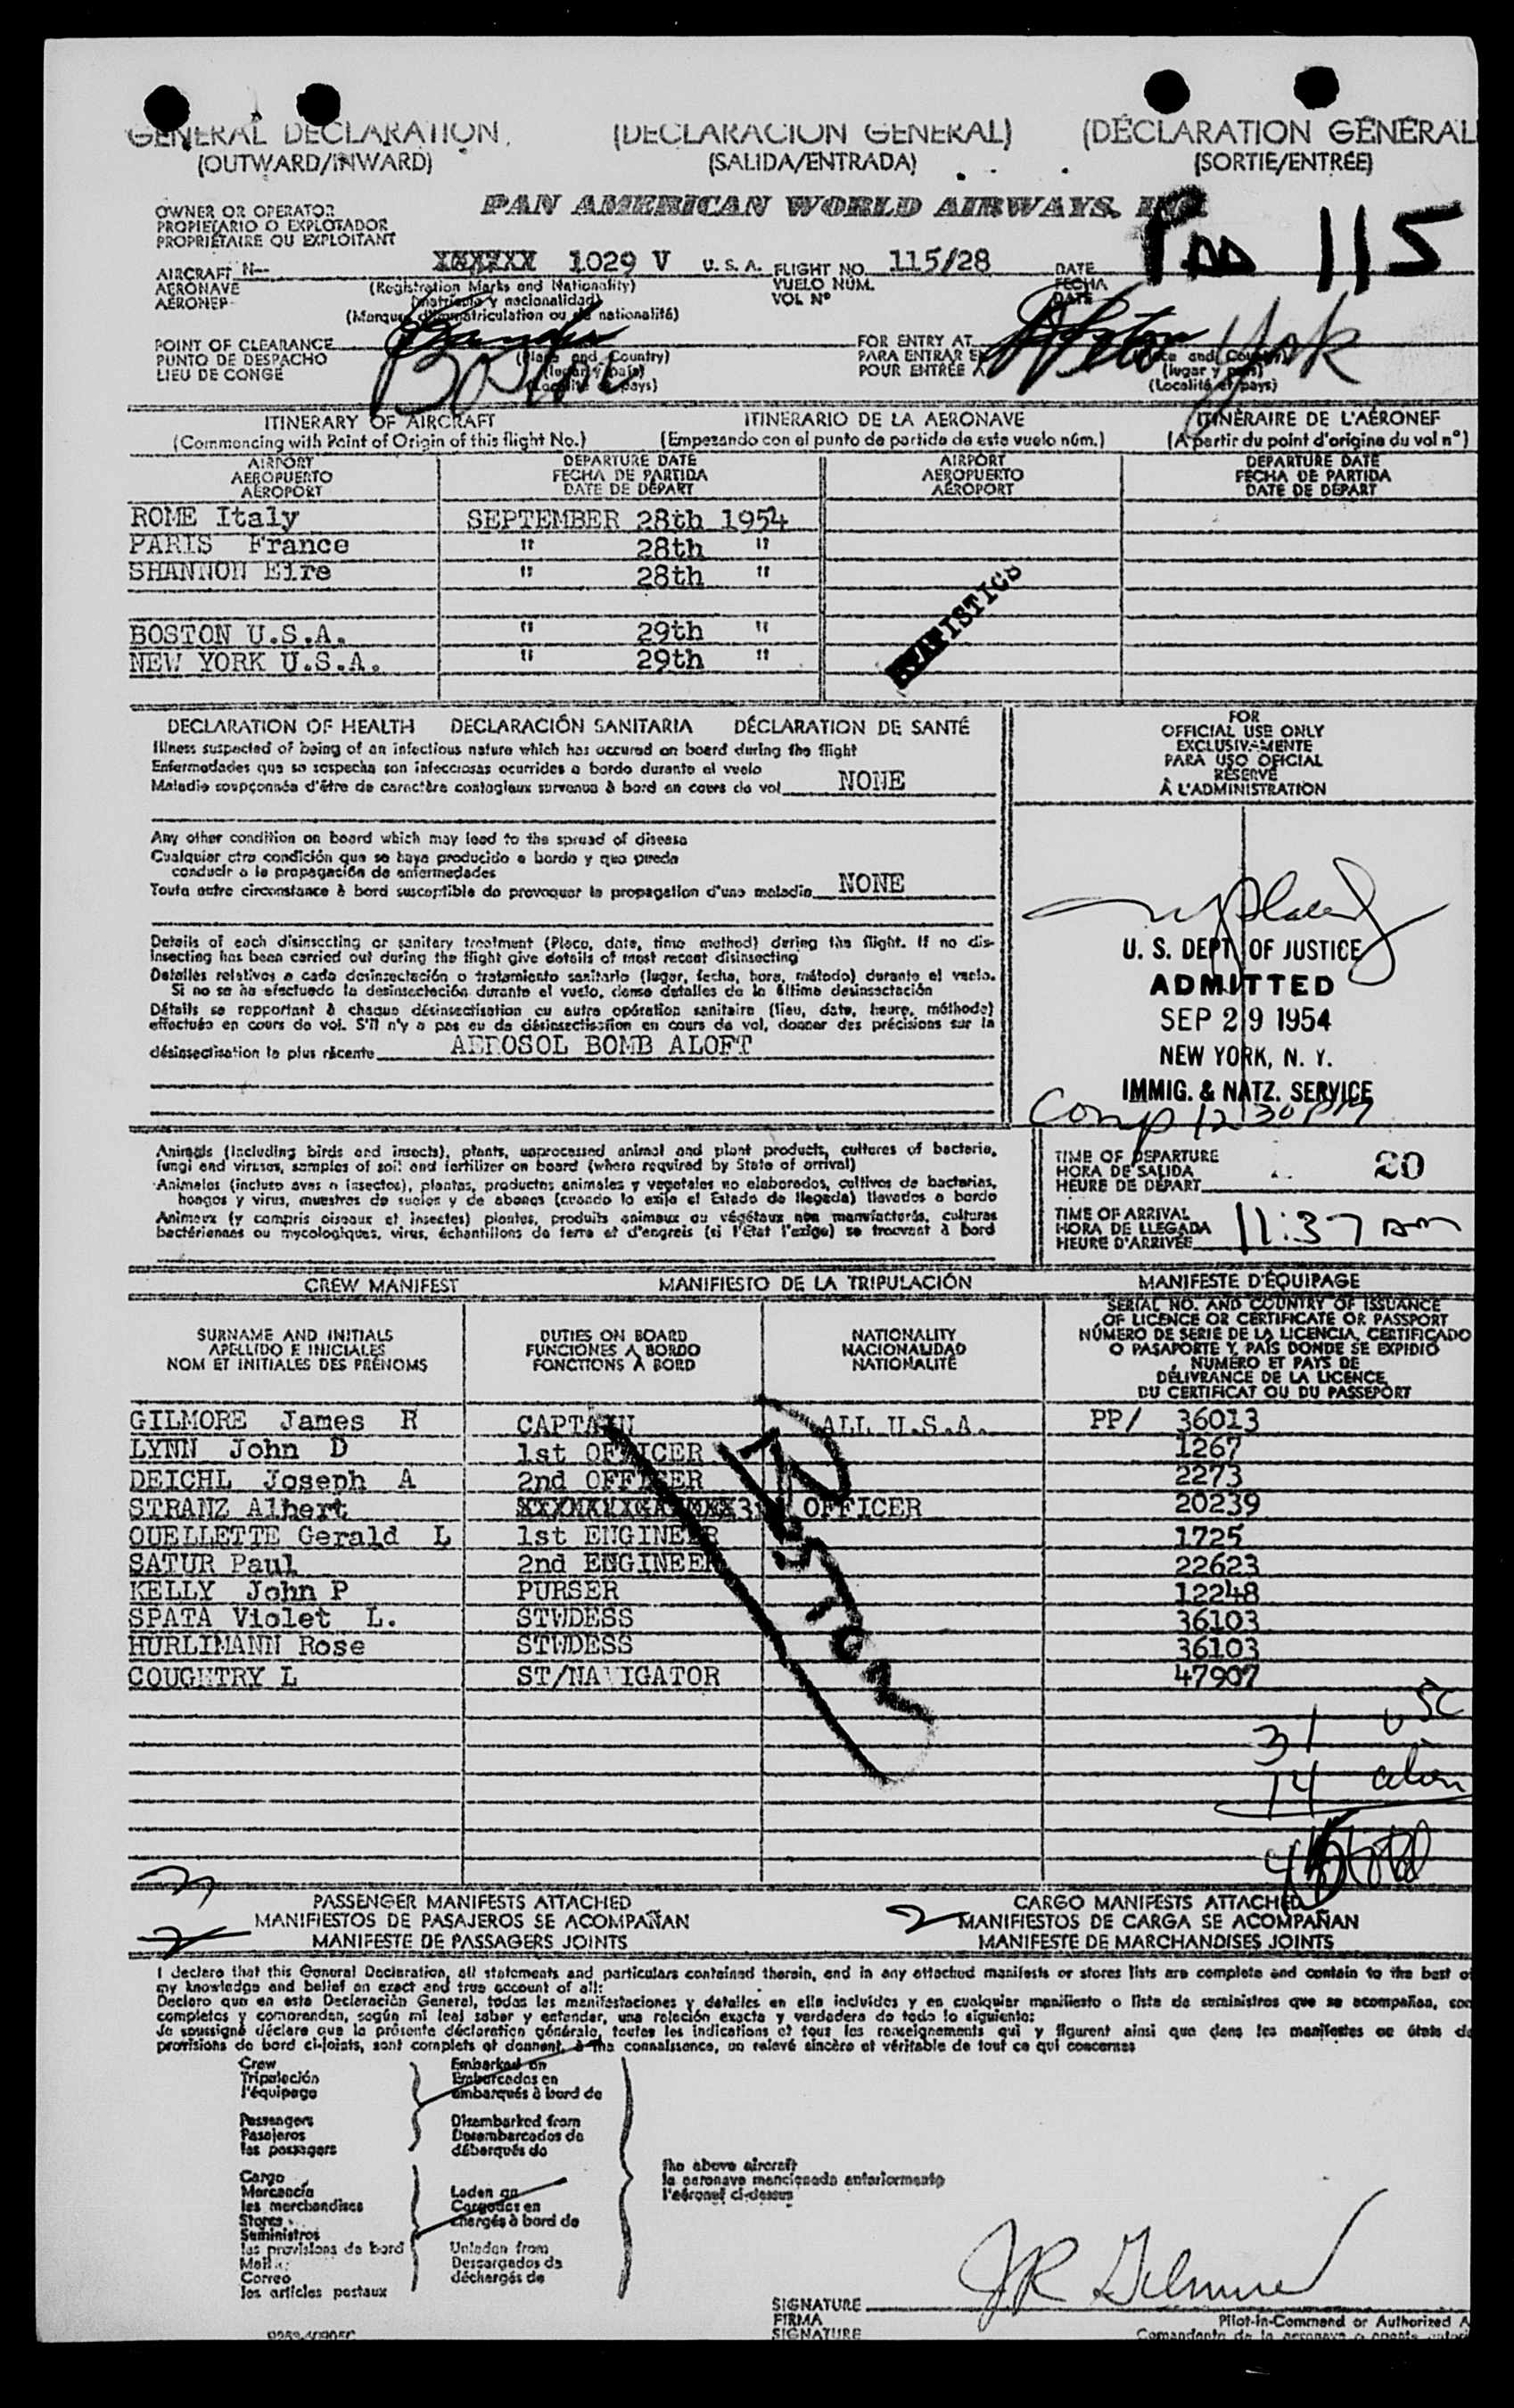 GENERAL DECLARATION. (DECLARACION GENERAL) (DÉCLARATION GÉNÉRAL
(OUTWARD/INWARD) (SALIDA/ENTRADA) (SORTIE/ENTRÉE)
PAN AMERICAN WORLD AIRWAYS, INC.
OWNER OR OPERATOR
PROPIETARIO O EXPLOTADOR
PROPRIÉTAIRE OU EXPLOITANT
Paa 115
AIRCRAFT N-- XXXXXX 1029 V U.S.A. FLIGHT NO. 115/28 DATE
AERONAVE (Registration Marks and Nationality) VUELO NÚM. FECHA
AÉRONEF (Matrícula y nacionalidad) VOL Nº DATE
(Marques d'immatriculation ou de nationalité)
POINT OF CLEARANCE Boston FOR ENTRY AT York
PUNTO DE DESPACHO (Place and Country) PARA ENTRAR EN (Place and Country)
LIEU DE CONGÉ (lugar y país) POUR ENTRÉE À (lugar y país)
(Localité et pays) (Localité et pays)
ITINERARY OF AIRCRAFT ITINERARIO DE LA AERONAVE ITINÉRAIRE DE L'AÉRONEF
(Commencing with Point of Origin of this flight No.) (Empezando con el punto de partida de este vuelo núm.) (À partir du point d'origine du vol nº)
AIRPORT DEPARTURE DATE AIRPORT DEPARTURE DATE
AEROPUERTO FECHA DE PARTIDA AEROPUERTO FECHA DE PARTIDA
AÉROPORT DATE DE DÉPART AÉROPORT DATE DE DÉPART
ROME Italy SEPTEMBER 28th 1954
PARIS France " 28th "
SHANNON Eire " 28th "
STATISTICS
BOSTON U.S.A. " 29th "
NEW YORK U.S.A. " 29th "
DECLARATION OF HEALTH DECLARACIÓN SANITARIA DÉCLARATION DE SANTÉ
Illness suspected of being of an infectious nature which has occurred on board during the flight
Enfermedades que se sospecha son infecciosas ocurridas a bordo durante el vuelo
Maladie soupçonnée d'être de caractère contagieux survenue à bord en cours de vol NONE
Any other condition on board which may lead to the spread of disease
Cualquier otra condición que se haya producido a bordo y que pueda
conducir a la propagación de enfermedades
Toute autre circonstance à bord susceptible de provoquer la propagation d'une maladie NONE
Details of each disinsecting or sanitary treatment (Place, date, time method) during the flight. If no dis-
insecting has been carried out during the flight give details of most recent disinsecting
Detalles relativos a cada desinsectación o tratamiento sanitario (lugar, fecha, hora, método) durante el vuelo.
Si no se ha efectuado la desinsectación durante el vuelo, dense detalles de la última desinsectación
Détails se rapportant à chaque désinsectisation ou autre opération sanitaire (lieu, date, heure, méthode)
effectuée en cours de vol. S'il n'y a pas eu de désinsectisation en cours de vol, donner des précisions sur la
désinsectisation la plus récente AEROSOL BOMB ALOFT
FOR
OFFICIAL USE ONLY
EXCLUSIVAMENTE
PARA USO OFICIAL
RÉSERVÉ
À L'ADMINISTRATION
U. S. DEPT. OF JUSTICE
ADMITTED
SEP 29 1954
NEW YORK, N. Y.
IMMIG. & NATZ. SERVICE
Comp 12 30 PM
Animals (including birds and insects), plants, unprocessed animal and plant products, cultures of bacteria,
fungi and viruses, samples of soil and fertilizer on board (where required by State of arrival)
Animales (incluso aves e insectos), plantas, productos animales y vegetales no elaborados, cultivos de bacterias,
hongos y virus, muestras de suelos y de abonos (cuando lo exija el Estado de llegada) llevados a bordo
Animaux (y compris oiseaux et insectes) plantes, produits animaux ou végétaux non manufacturés, cultures
bactériennes ou mycologiques, virus, échantillons de terre et d'engrais (si l'État l'exige) se trouvant à bord
TIME OF DEPARTURE
HORA DE SALIDA
HEURE DE DÉPART 20
TIME OF ARRIVAL
HORA DE LLEGADA
HEURE D'ARRIVÉE 11:37 am
CREW MANIFEST MANIFIESTO DE LA TRIPULACIÓN MANIFESTE D'ÉQUIPAGE
SURNAME AND INITIALS DUTIES ON BOARD NATIONALITY
APELLIDO E INICIALES FUNCIONES A BORDO NACIONALIDAD
NOM ET INITIALES DES PRÉNOMS FONCTIONS À BORD NATIONALITÉ
SERIAL NO. AND COUNTRY OF ISSUANCE
OF LICENCE OR CERTIFICATE OR PASSPORT
NÚMERO DE SERIE DE LA LICENCIA, CERTIFICADO
O PASAPORTE Y PAÍS DONDE SE EXPIDIÓ
NUMÉRO ET PAYS DE
DÉLIVRANCE DE LA LICENCE,
DU CERTIFICAT OU DU PASSEPORT
GILMORE James R CAPTAIN ALL U.S.A. PP/ 36013
LYNN John D 1st OFFICER 1267
DEICHL Joseph A 2nd OFFICER 2273
STRANZ Albert 3rd OFFICER 20239
OUELLETTE Gerald L 1st ENGINEER 1725
SATUR Paul 2nd ENGINEER 22623
KELLY John P PURSER 12248
SPATA Violet L. STWDESS 36103
HURLIMANN Rose STWDESS 36103
COUGHTRY L ST/NAVIGATOR 47907
BOSTON
31 USC
14 alien
45 total
PASSENGER MANIFESTS ATTACHED CARGO MANIFESTS ATTACHED
2 MANIFIESTOS DE PASAJEROS SE ACOMPAÑAN 2 MANIFIESTOS DE CARGA SE ACOMPAÑAN
MANIFESTE DE PASSAGERS JOINTS MANIFESTE DE MARCHANDISES JOINTS
I declare that this General Declaration, all statements and particulars contained therein, and in any attached manifests or stores lists are complete and contain to the best of
my knowledge and belief an exact and true account of all:
Declaro que en esta Declaración General, todas las manifestaciones y detalles en ella incluidos y en cualquier manifiesto o lista de suministros que se acompañan, son
completos y comprenden, según mi leal saber y entender, una relación exacta y verdadera de todo lo siguiente:
Je soussigné déclare que la présente déclaration générale, toutes les indications et tous les renseignements qui y figurent ainsi que dans les manifestes ou états de
provisions de bord ci-joints, sont complets et donnent, à ma connaissance, un relevé sincère et véritable de tout ce qui concerne:
Crew Embarked on
Tripulación Embarcados en
l'équipage embarqués à bord de
Passengers Disembarked from
Pasajeros Desembarcados de
les passagers débarqués de
Cargo
Mercancía Laden on
les marchandises Cargados en
Stores chargés à bord de
Suministros
les provisions de bord Unladen from
Mail Descargados de
Correo déchargés de
les articles postaux
the above aircraft
la aeronave mencionada anteriormente
l'aéronef ci-dessus
JR Gilmore
SIGNATURE
FIRMA Pilot-in-Command or Authorized A
SIGNATURE Comandante de la aeronave o agente autori